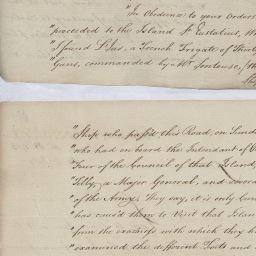 "In Obedience to your Orders
"proceeded to the Island St Eustatius, W
"I found L'Iris, a French Frigate of Thirty
"Guns, commanded by Mr
"Ship who passed this Road, on Sund
"who had on board the Intendant of
"Four of the Council of that Island,
"Tilly, a Major General, and several
"of the Army, They say, it is only Curi
"has caus'd them to Visit that Islan
"from the exactness with which they h
"examined the different Forts and